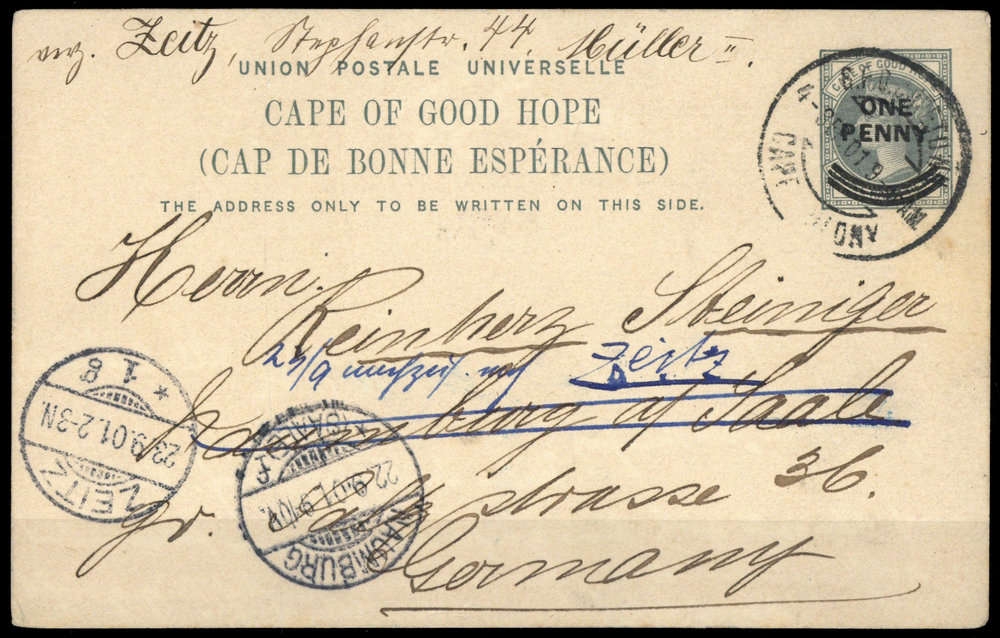 verz. Zeitz, Stephanstr. 44, Müller II
UNION POSTALE UNIVERSELLE
CAPE OF GOOD HOPE
(CAP DE BONNE ESPÉRANCE)
THE ADDRESS ONLY TO BE WRITTEN ON THIS SIDE.
CAPE OF GOOD HOPE
ONE
PENNY
G.P.O.
CAPE
Herrn
Reinherz Steiniger
23/9 nach Zeitz
Naumburg a/ Saale
gr. strasse 36.
Germany
* 1 8
23.9.01.2-3N.
ZEITZ
(SAALE)
22.9.01.9-10V.
NAUMBURG